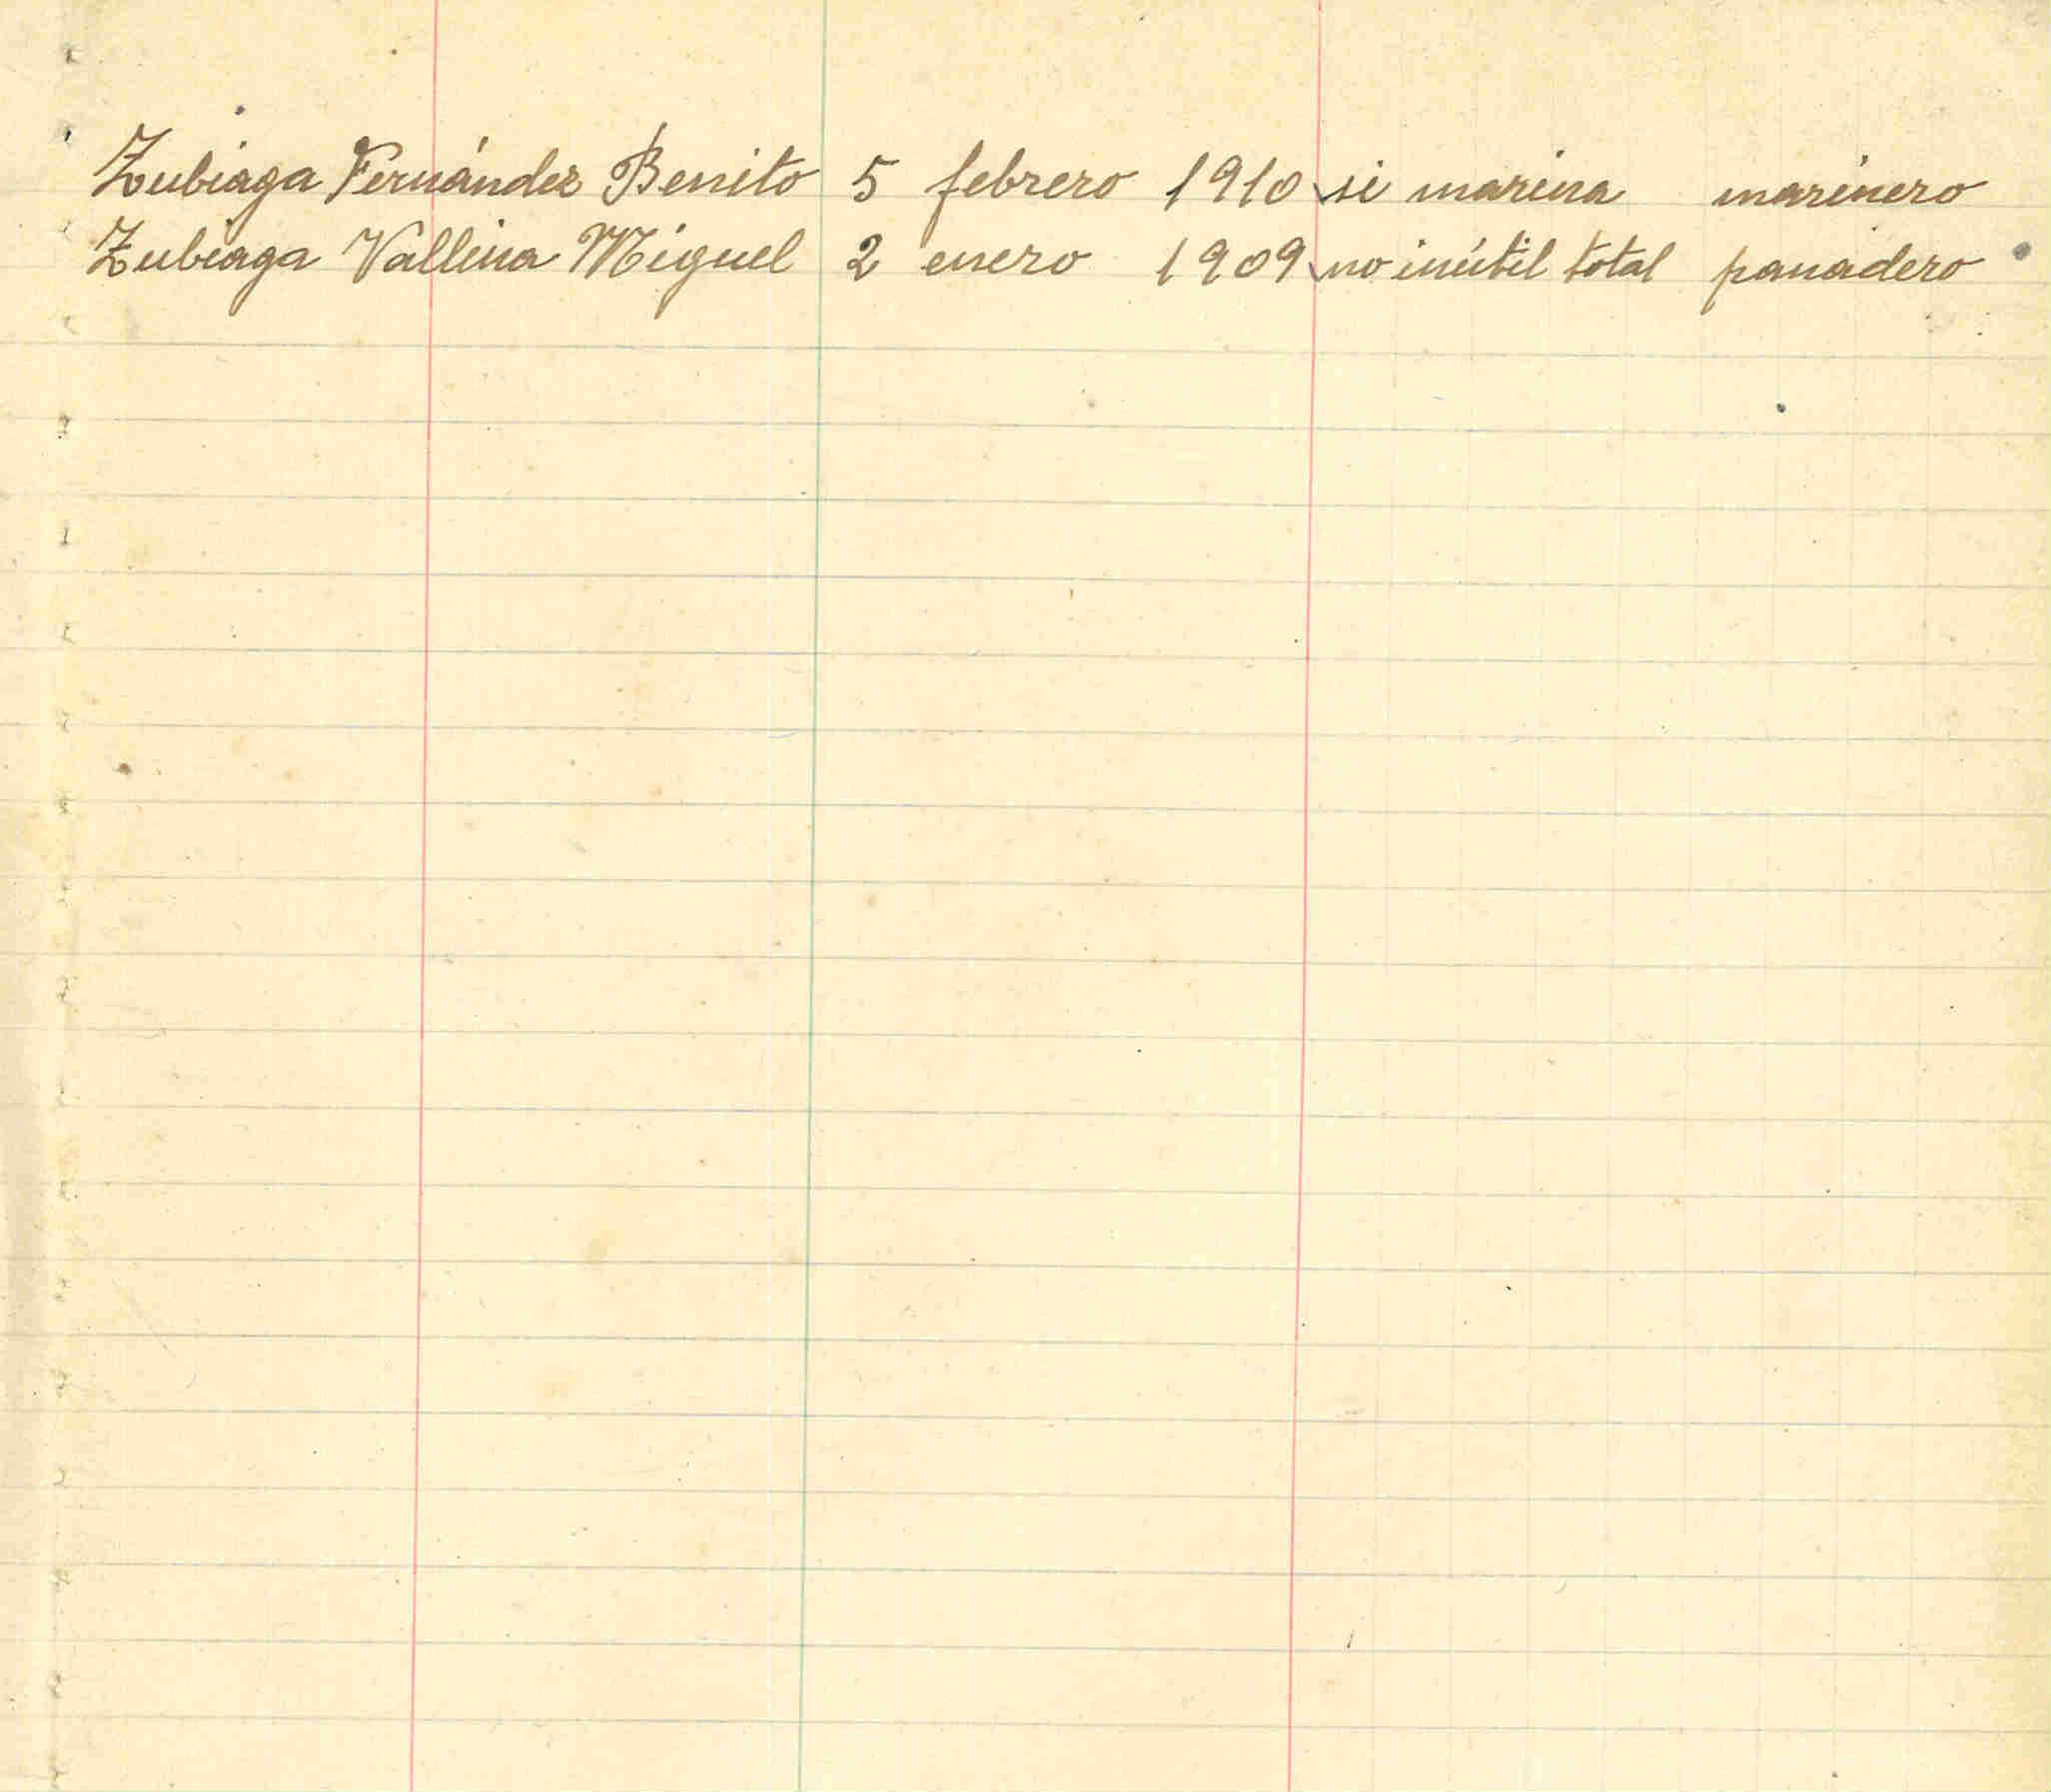 Zubiaga Fernández Benito 5 febrero 1910 si marina marinero
Zubiaga Vallina Miguel 2 enero 1909 no inútil total panadero